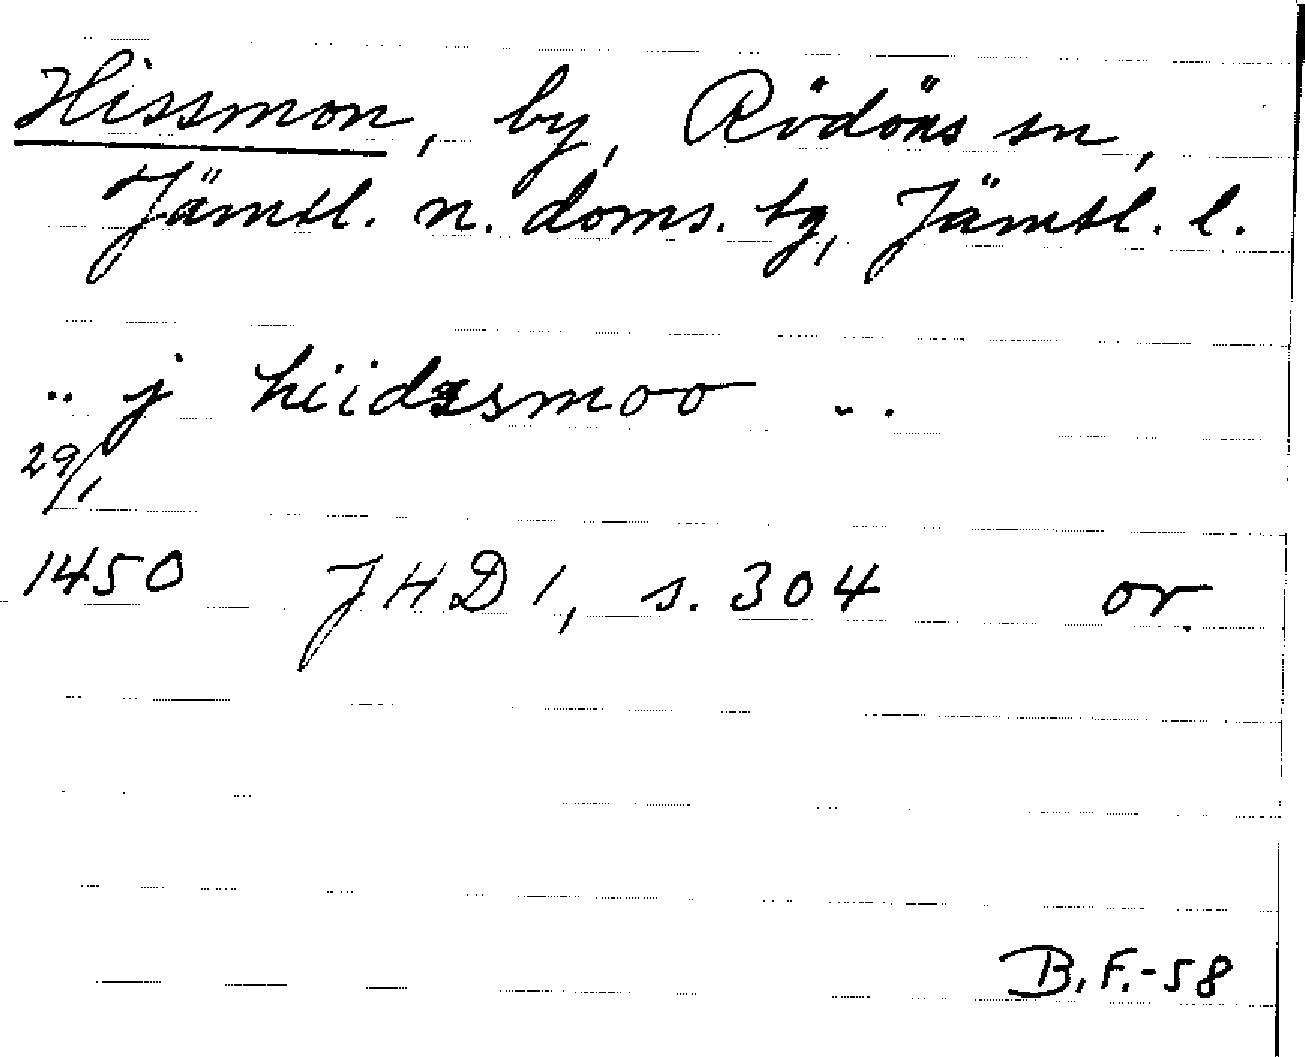 Hissmon, by, Rödöns sn,
Jämtl. n. doms. tg, Jämtl. l.
.. j hiidssmoo ...
29/1
1450 JHD 1, s. 304 or.
B.F.-58